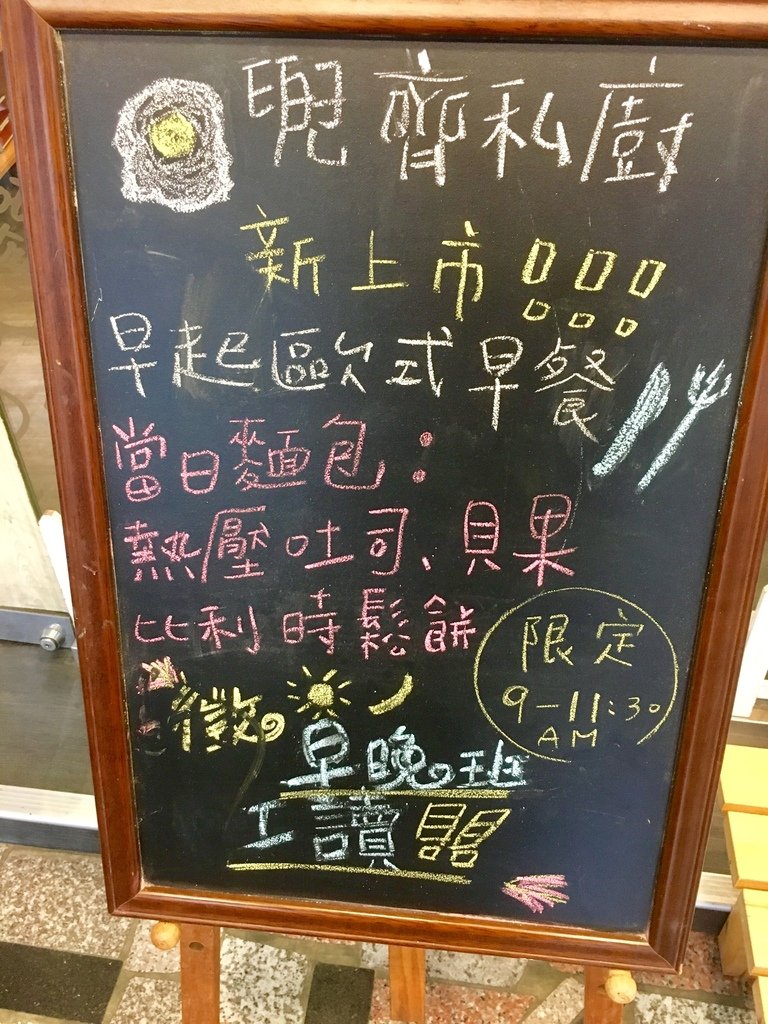 兜齊私廚
新上市!!!
早起歐式早餐
當日麵包:
熱壓吐司、貝果
比利時鬆餅
限定
9-11:30
AM
徵
早晚班
工讀